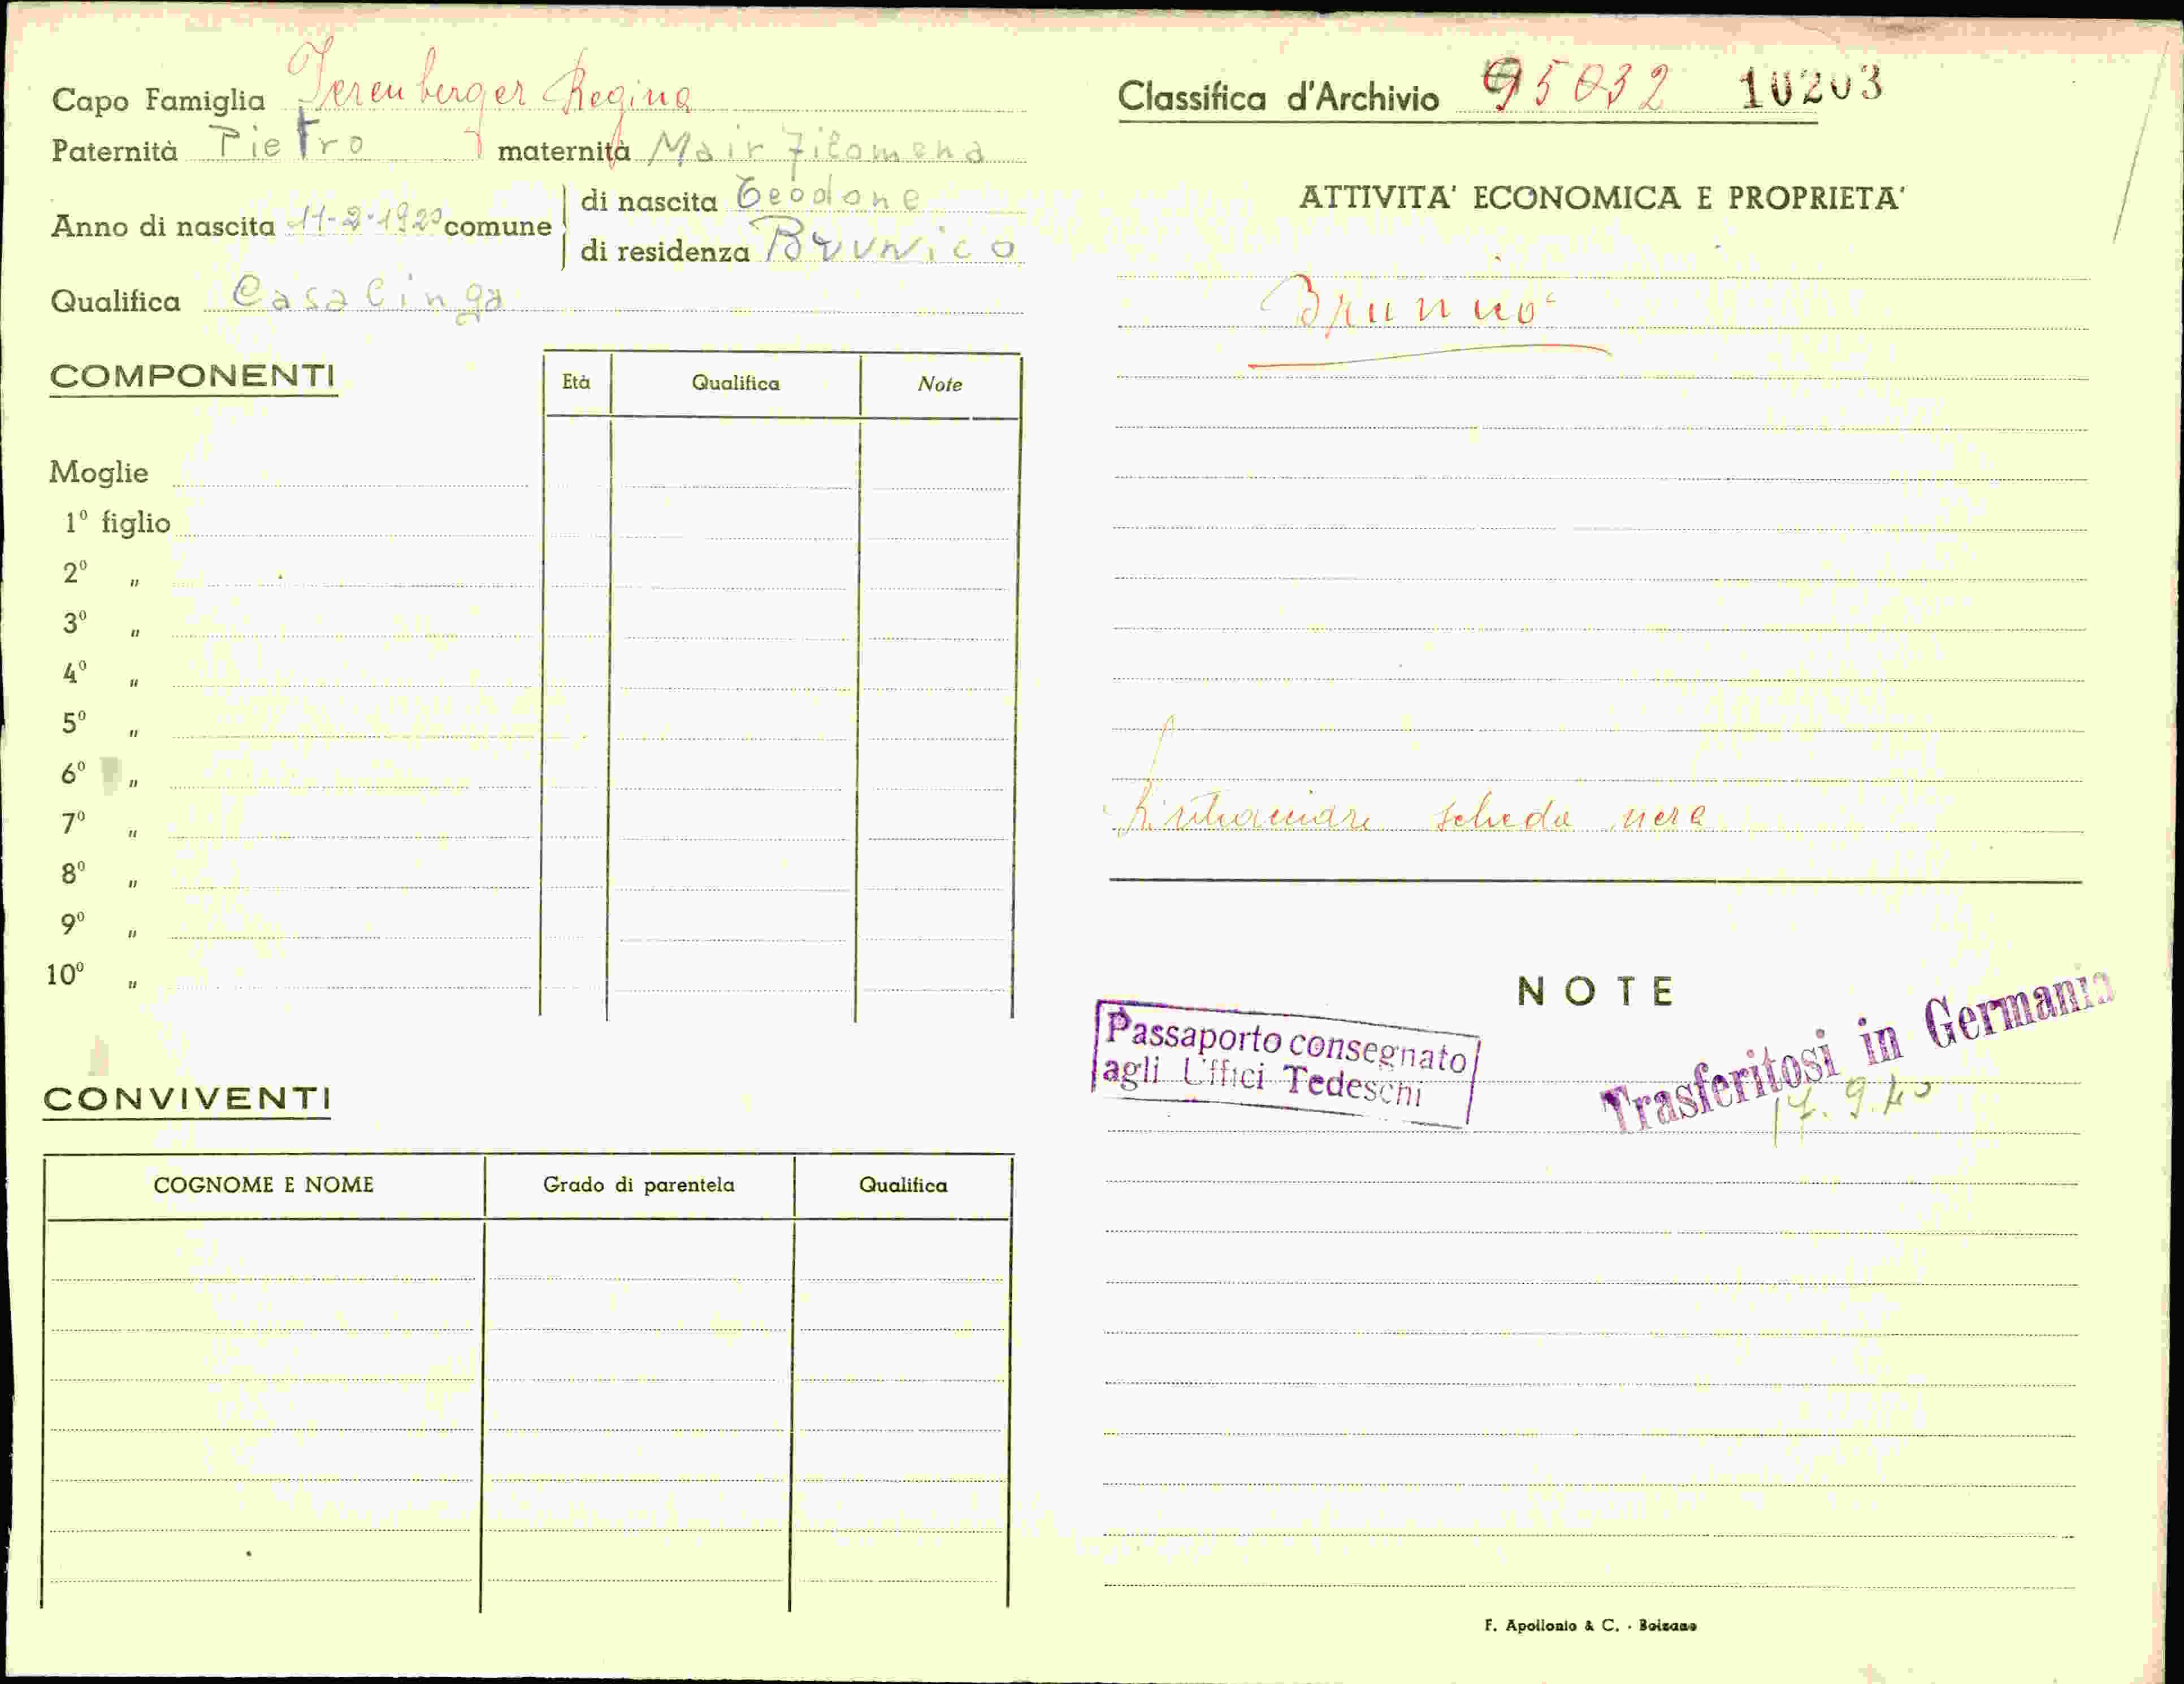 Capo Famiglia Ferenberger Regina
Paternità Pietro maternità Mair Filomena
Anno di nascita 11-2-1920 comune
di nascita Teodone
di residenza Brunico
Qualifica Casalinga
COMPONENTI
Età Qualifica Note
Moglie
1º figlio
2º "
3º "
4º "
5º "
6º "
7º "
8º "
9º "
10º "
CONVIVENTI
COGNOME E NOME Grado di parentela Qualifica
Classifica d'Archivio 95032 10203
ATTIVITA' ECONOMICA E PROPRIETA'
Brunico
Rintracciare scheda nera
NOTE
Passaporto consegnato
agli Uffici Tedeschi
Trasferitosi in Germania
17.9.40
F. Apollonio & C. - Bolzano